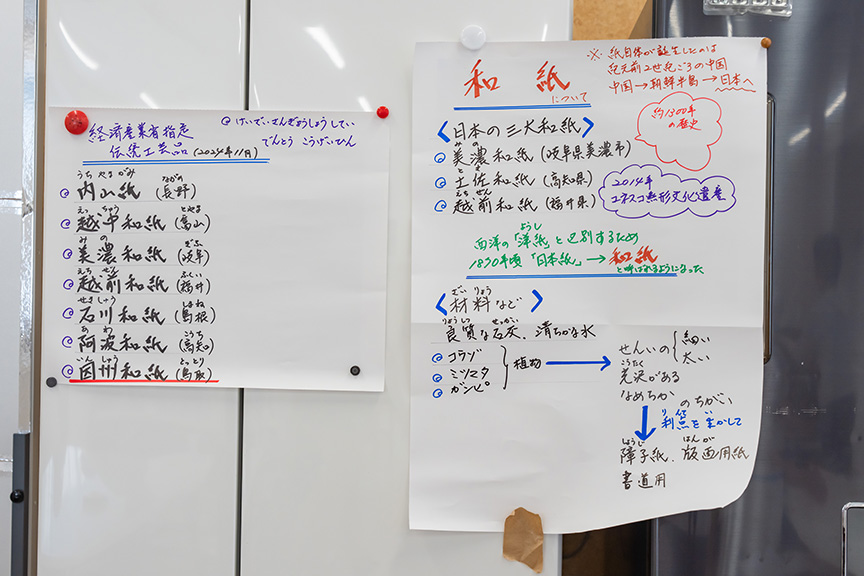 経済産業省指定 ◎けいざいさんぎょうしょうしてい
伝統工芸品(2024年11月) でんとう こうげいひん
うち やま がみ ながの
◎内山紙(長野)
えっ ちゅう とやま
◎越中和紙(富山)
み の ぎふ
◎美濃和紙(岐阜)
えち ぜん ふくい
◎越前和紙(福井)
せき しゅう しまね
◎石川和紙(島根)
あ わ こうち
◎阿波和紙(高知)
いん しゅう とっとり
◎因州和紙(鳥取)
※紙自体が誕生したのは
紀元前2世紀ごろの中国
中国→朝鮮半島→日本へ
和紙
について
約1300年
の歴史
〈日本の三大和紙〉
み の
◎美濃和紙(岐阜県美濃市)
と さ
◎土佐和紙(高知県)
えち ぜん
◎越前和紙(福井県)
2014年
ユネスコ無形文化遺産
ようし
西洋の「洋紙」と区別するため
1870年頃「日本紙」→和紙
と呼ばれるようになった
ざい りょう
〈材料など〉
りょうしつ せっかい
良質な石灰、清らかな水
◎コウゾ
◎ミツマタ
◎ガンピ
植物
せんいの 細い
太い
こうたく
光沢がある
なめらか のちがい
り てん い
利点を生かして
しょうじ はんが
障子紙、版画用紙
書道用